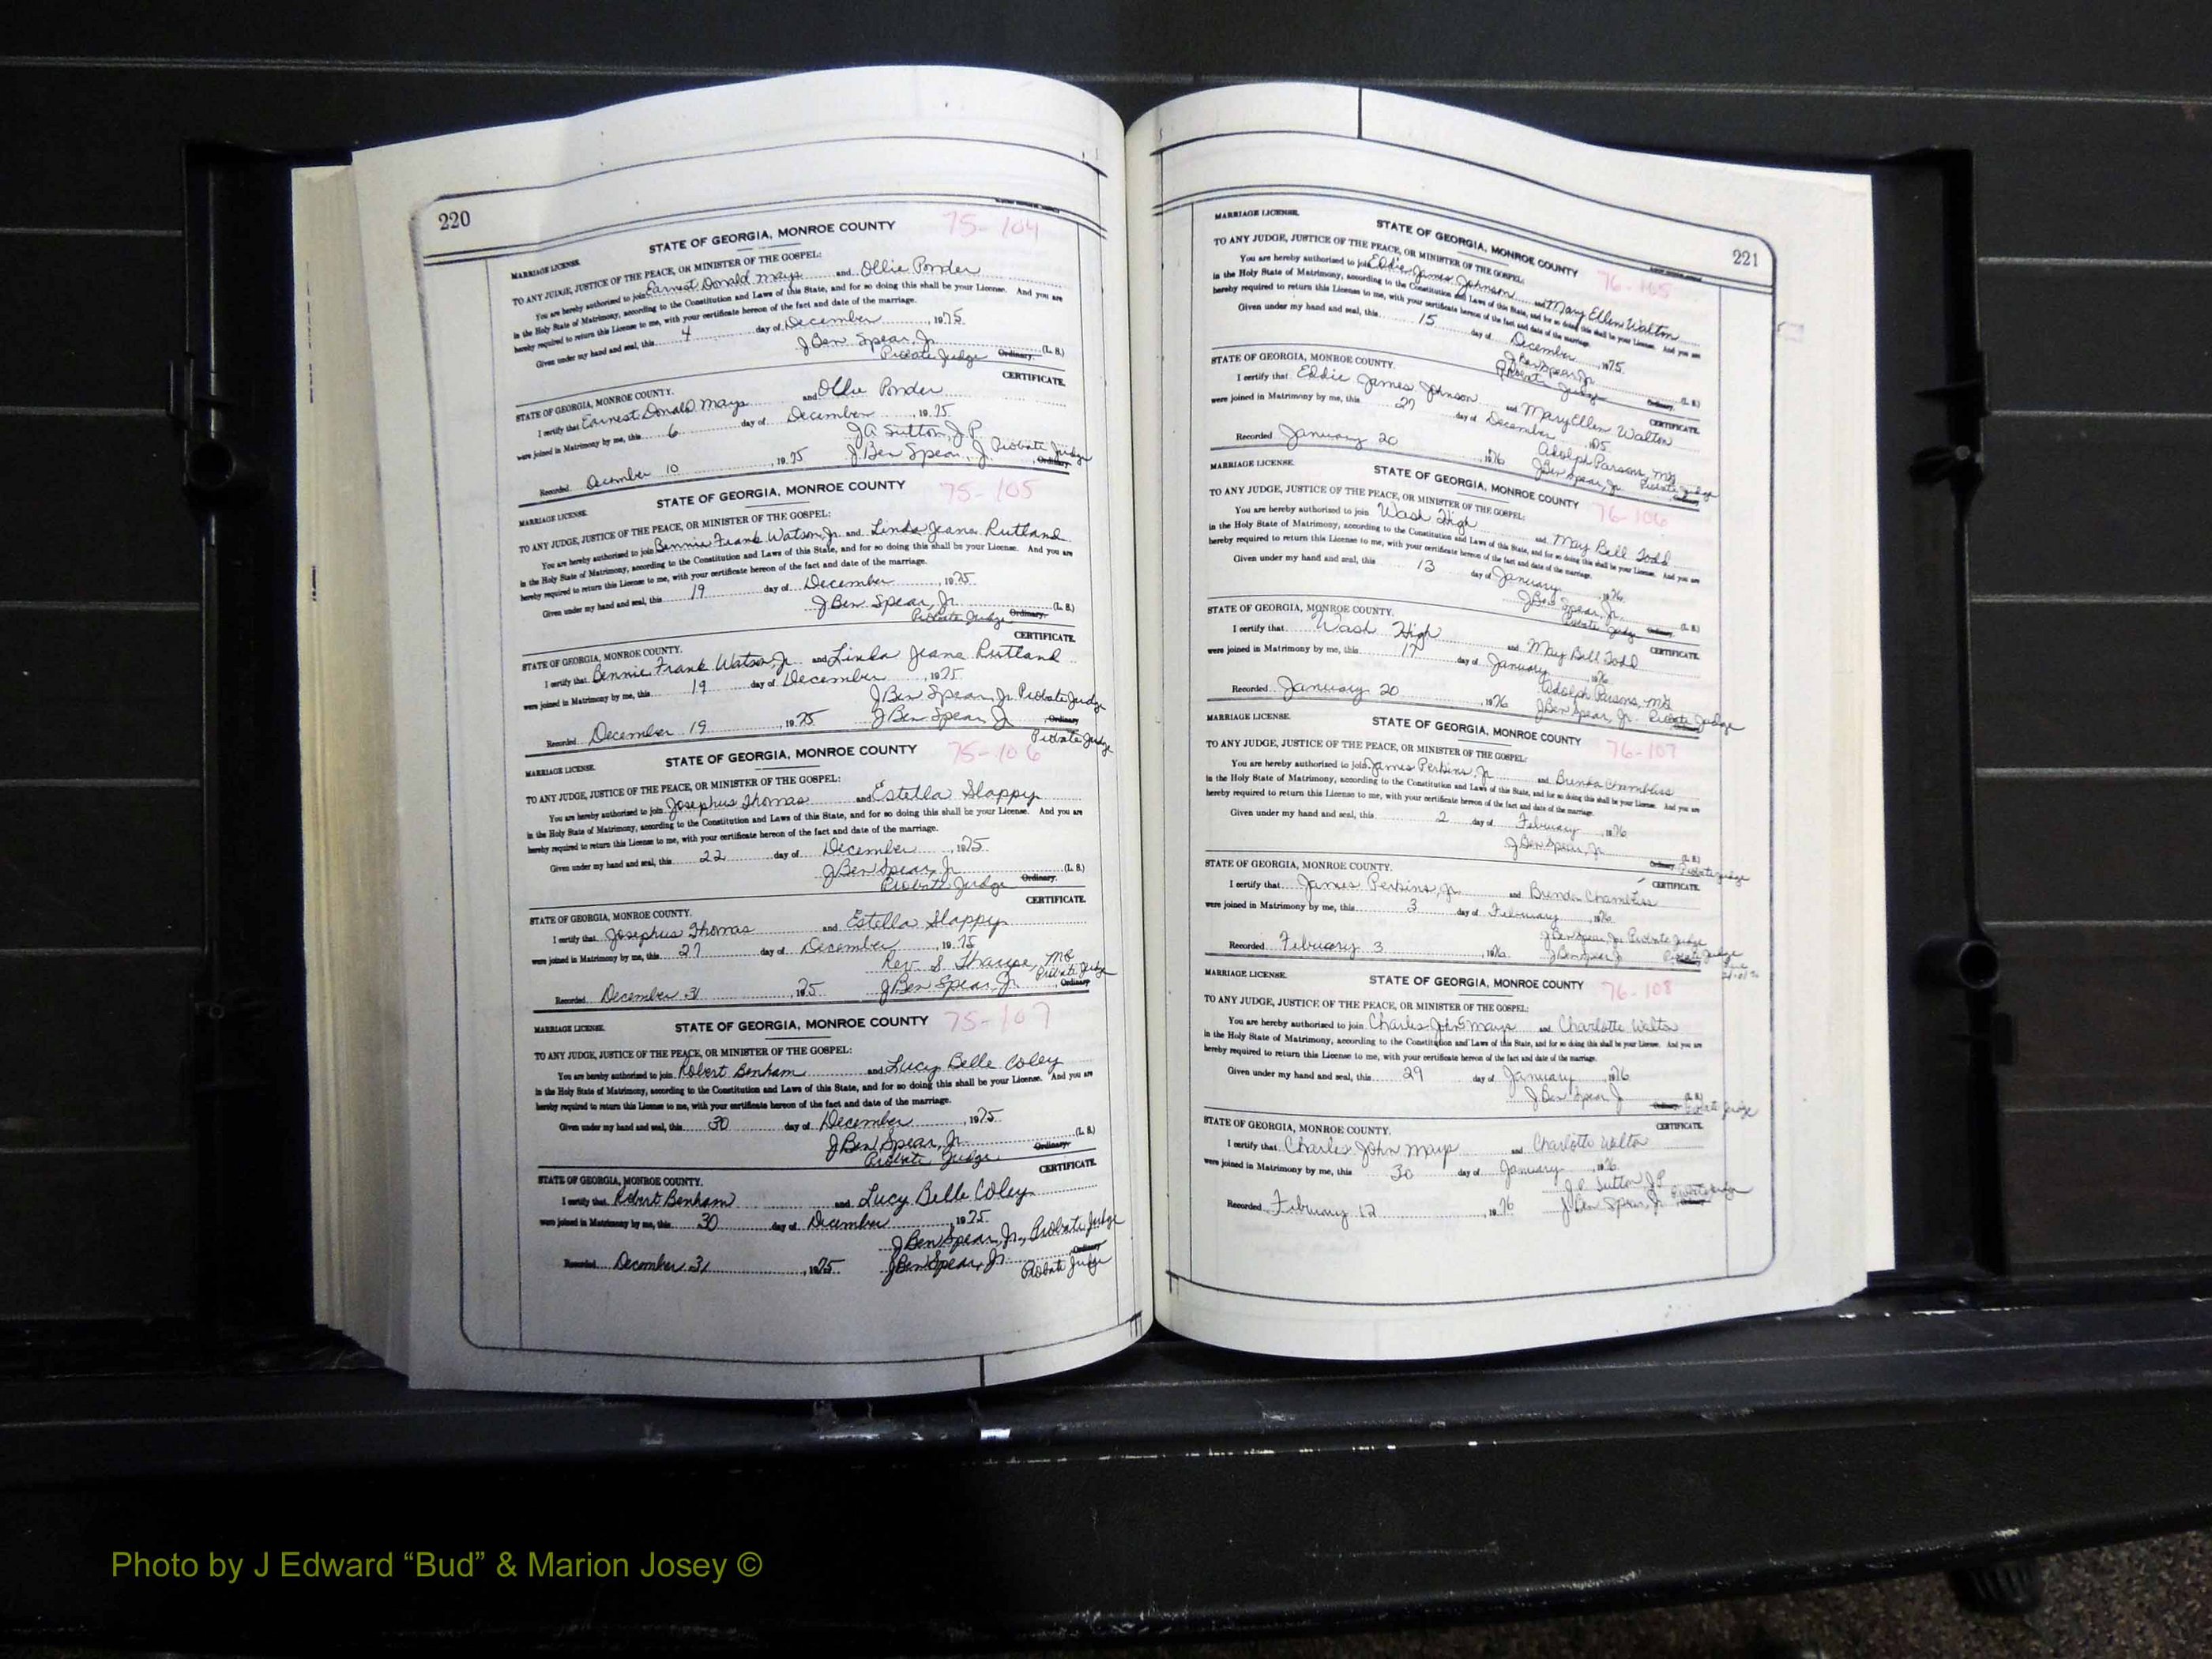 220
75-104
MARRIAGE LICENSE. STATE OF GEORGIA, MONROE COUNTY
TO ANY JUDGE, JUSTICE OF THE PEACE, OR MINISTER OF THE GOSPEL:
You are hereby authorized to join Earnest Donald Mays and Ollie Ponder
in the Holy State of Matrimony, according to the Constitution and Laws of this State, and for so doing this shall be your License. And you are
hereby required to return this License to me, with your certificate hereon of the fact and date of the marriage.
Given under my hand and seal, this 4 day of December, 1975
J Ben Spear, Jr. (L. S.)
Probate Judge Ordinary.
CERTIFICATE.
STATE OF GEORGIA, MONROE COUNTY.
I certify that Earnest Donald Mays and Ollie Ponder
were joined in Matrimony by me, this 6 day of December, 1975
J A Sutton, J P
Recorded December 10, 1975 J. Ben Spear, Jr. Probate Judge
Ordinary.
MARRIAGE LICENSE. STATE OF GEORGIA, MONROE COUNTY 75-105
TO ANY JUDGE, JUSTICE OF THE PEACE, OR MINISTER OF THE GOSPEL:
You are hereby authorized to join Bennie Frank Watson, Jr. and Linda Jeana Rutland
in the Holy State of Matrimony, according to the Constitution and Laws of this State, and for so doing this shall be your License. And you are
hereby required to return this License to me, with your certificate hereon of the fact and date of the marriage.
Given under my hand and seal, this 19 day of December, 1975
J Ben Spear, Jr. (L. S.)
Probate Judge Ordinary.
CERTIFICATE.
STATE OF GEORGIA, MONROE COUNTY.
I certify that Bennie Frank Watson, Jr. and Linda Jeana Rutland
were joined in Matrimony by me, this 19 day of December, 1975
J Ben Spear, Jr. Probate Judge
Recorded December 19, 1975 J Ben Spear, Jr. Ordinary
Probate Judge
MARRIAGE LICENSE. STATE OF GEORGIA, MONROE COUNTY 75-106
TO ANY JUDGE, JUSTICE OF THE PEACE, OR MINISTER OF THE GOSPEL:
You are hereby authorized to join Josephus Thomas and Estella Slappy
in the Holy State of Matrimony, according to the Constitution and Laws of this State, and for so doing this shall be your License. And you are
hereby required to return this License to me, with your certificate hereon of the fact and date of the marriage.
Given under my hand and seal, this 22 day of December, 1975
J Ben Spear, Jr. (L. S.)
Probate Judge Ordinary.
CERTIFICATE.
STATE OF GEORGIA, MONROE COUNTY.
I certify that Josephus Thomas and Estella Slappy
were joined in Matrimony by me, this 27 day of December, 1975
Rev. S. Tharpe, MG
Recorded December 31, 1975 J Ben Spear, Jr. Probate Judge
Ordinary
MARRIAGE LICENSE. STATE OF GEORGIA, MONROE COUNTY 75-107
TO ANY JUDGE, JUSTICE OF THE PEACE, OR MINISTER OF THE GOSPEL:
You are hereby authorized to join Robert Benham and Lucy Belle Coley
in the Holy State of Matrimony, according to the Constitution and Laws of this State, and for so doing this shall be your License. And you are
hereby required to return this License to me, with your certificate hereon of the fact and date of the marriage.
Given under my hand and seal, this 30 day of December, 1975
J Ben Spear, Jr. (L. S.)
Probate Judge Ordinary.
CERTIFICATE.
STATE OF GEORGIA, MONROE COUNTY.
I certify that Robert Benham and Lucy Belle Coley
were joined in Matrimony by me, this 30 day of December, 1975
J Ben Spear, Jr., Probate Judge
Recorded December 31, 1975 J Ben Spear, Jr. Ordinary
Probate Judge
221
MARRIAGE LICENSE. STATE OF GEORGIA, MONROE COUNTY 76-105
TO ANY JUDGE, JUSTICE OF THE PEACE, OR MINISTER OF THE GOSPEL:
You are hereby authorized to join Eddie James Johnson and Mary Ellen Walton
in the Holy State of Matrimony, according to the Constitution and Laws of this State, and for so doing this shall be your License. And you are
hereby required to return this License to me, with your certificate hereon of the fact and date of the marriage.
Given under my hand and seal, this 15 day of December, 1975
J Ben Spear, Jr. (L. S.)
Probate Judge Ordinary.
STATE OF GEORGIA, MONROE COUNTY. CERTIFICATE.
I certify that Eddie James Johnson and Mary Ellen Walton
were joined in Matrimony by me, this 27 day of December, 1975
Adolph Parsons, MG
Recorded January 20, 1976 J Ben Spear, Jr. Probate Judge
MARRIAGE LICENSE. STATE OF GEORGIA, MONROE COUNTY 76-106
TO ANY JUDGE, JUSTICE OF THE PEACE, OR MINISTER OF THE GOSPEL:
You are hereby authorized to join Wash High and May Bell Todd
in the Holy State of Matrimony, according to the Constitution and Laws of this State, and for so doing this shall be your License. And you are
hereby required to return this License to me, with your certificate hereon of the fact and date of the marriage.
Given under my hand and seal, this 13 day of January, 1976
J Ben Spear, Jr. (L. S.)
Probate Judge Ordinary.
STATE OF GEORGIA, MONROE COUNTY. CERTIFICATE.
I certify that Wash High and May Bell Todd
were joined in Matrimony by me, this 17 day of January, 1976
Adolph Parsons, MG
Recorded January 20, 1976 J Ben Spear, Jr. Probate Judge
MARRIAGE LICENSE. STATE OF GEORGIA, MONROE COUNTY 76-107
TO ANY JUDGE, JUSTICE OF THE PEACE, OR MINISTER OF THE GOSPEL:
You are hereby authorized to join James Perkins, Jr. and Brenda Chambliss
in the Holy State of Matrimony, according to the Constitution and Laws of this State, and for so doing this shall be your License. And you are
hereby required to return this License to me, with your certificate hereon of the fact and date of the marriage.
Given under my hand and seal, this 2 day of February, 1976
J Ben Spear, Jr. (L. S.)
Ordinary. Probate Judge
STATE OF GEORGIA, MONROE COUNTY. CERTIFICATE.
I certify that James Perkins, Jr. and Brenda Chambliss
were joined in Matrimony by me, this 3 day of February, 1976
J Ben Spear, Jr. Probate Judge
Recorded February 3, 1976 J Ben Spear Jr Probate Judge
MARRIAGE LICENSE. STATE OF GEORGIA, MONROE COUNTY 76-108
TO ANY JUDGE, JUSTICE OF THE PEACE, OR MINISTER OF THE GOSPEL:
You are hereby authorized to join Charles John Mays and Charlotte Walton
in the Holy State of Matrimony, according to the Constitution and Laws of this State, and for so doing this shall be your License. And you are
hereby required to return this License to me, with your certificate hereon of the fact and date of the marriage.
Given under my hand and seal, this 29 day of January, 1976
J Ben Spear Jr (L. S.)
Ordinary. Probate Judge
STATE OF GEORGIA, MONROE COUNTY. CERTIFICATE.
I certify that Charles John Mays and Charlotte Walton
were joined in Matrimony by me, this 30 day of January, 1976
Sutton JP
Recorded February 12, 1976 J Ben Spear, Jr. Probate Judge
Photo by J Edward “Bud” & Marion Josey ©